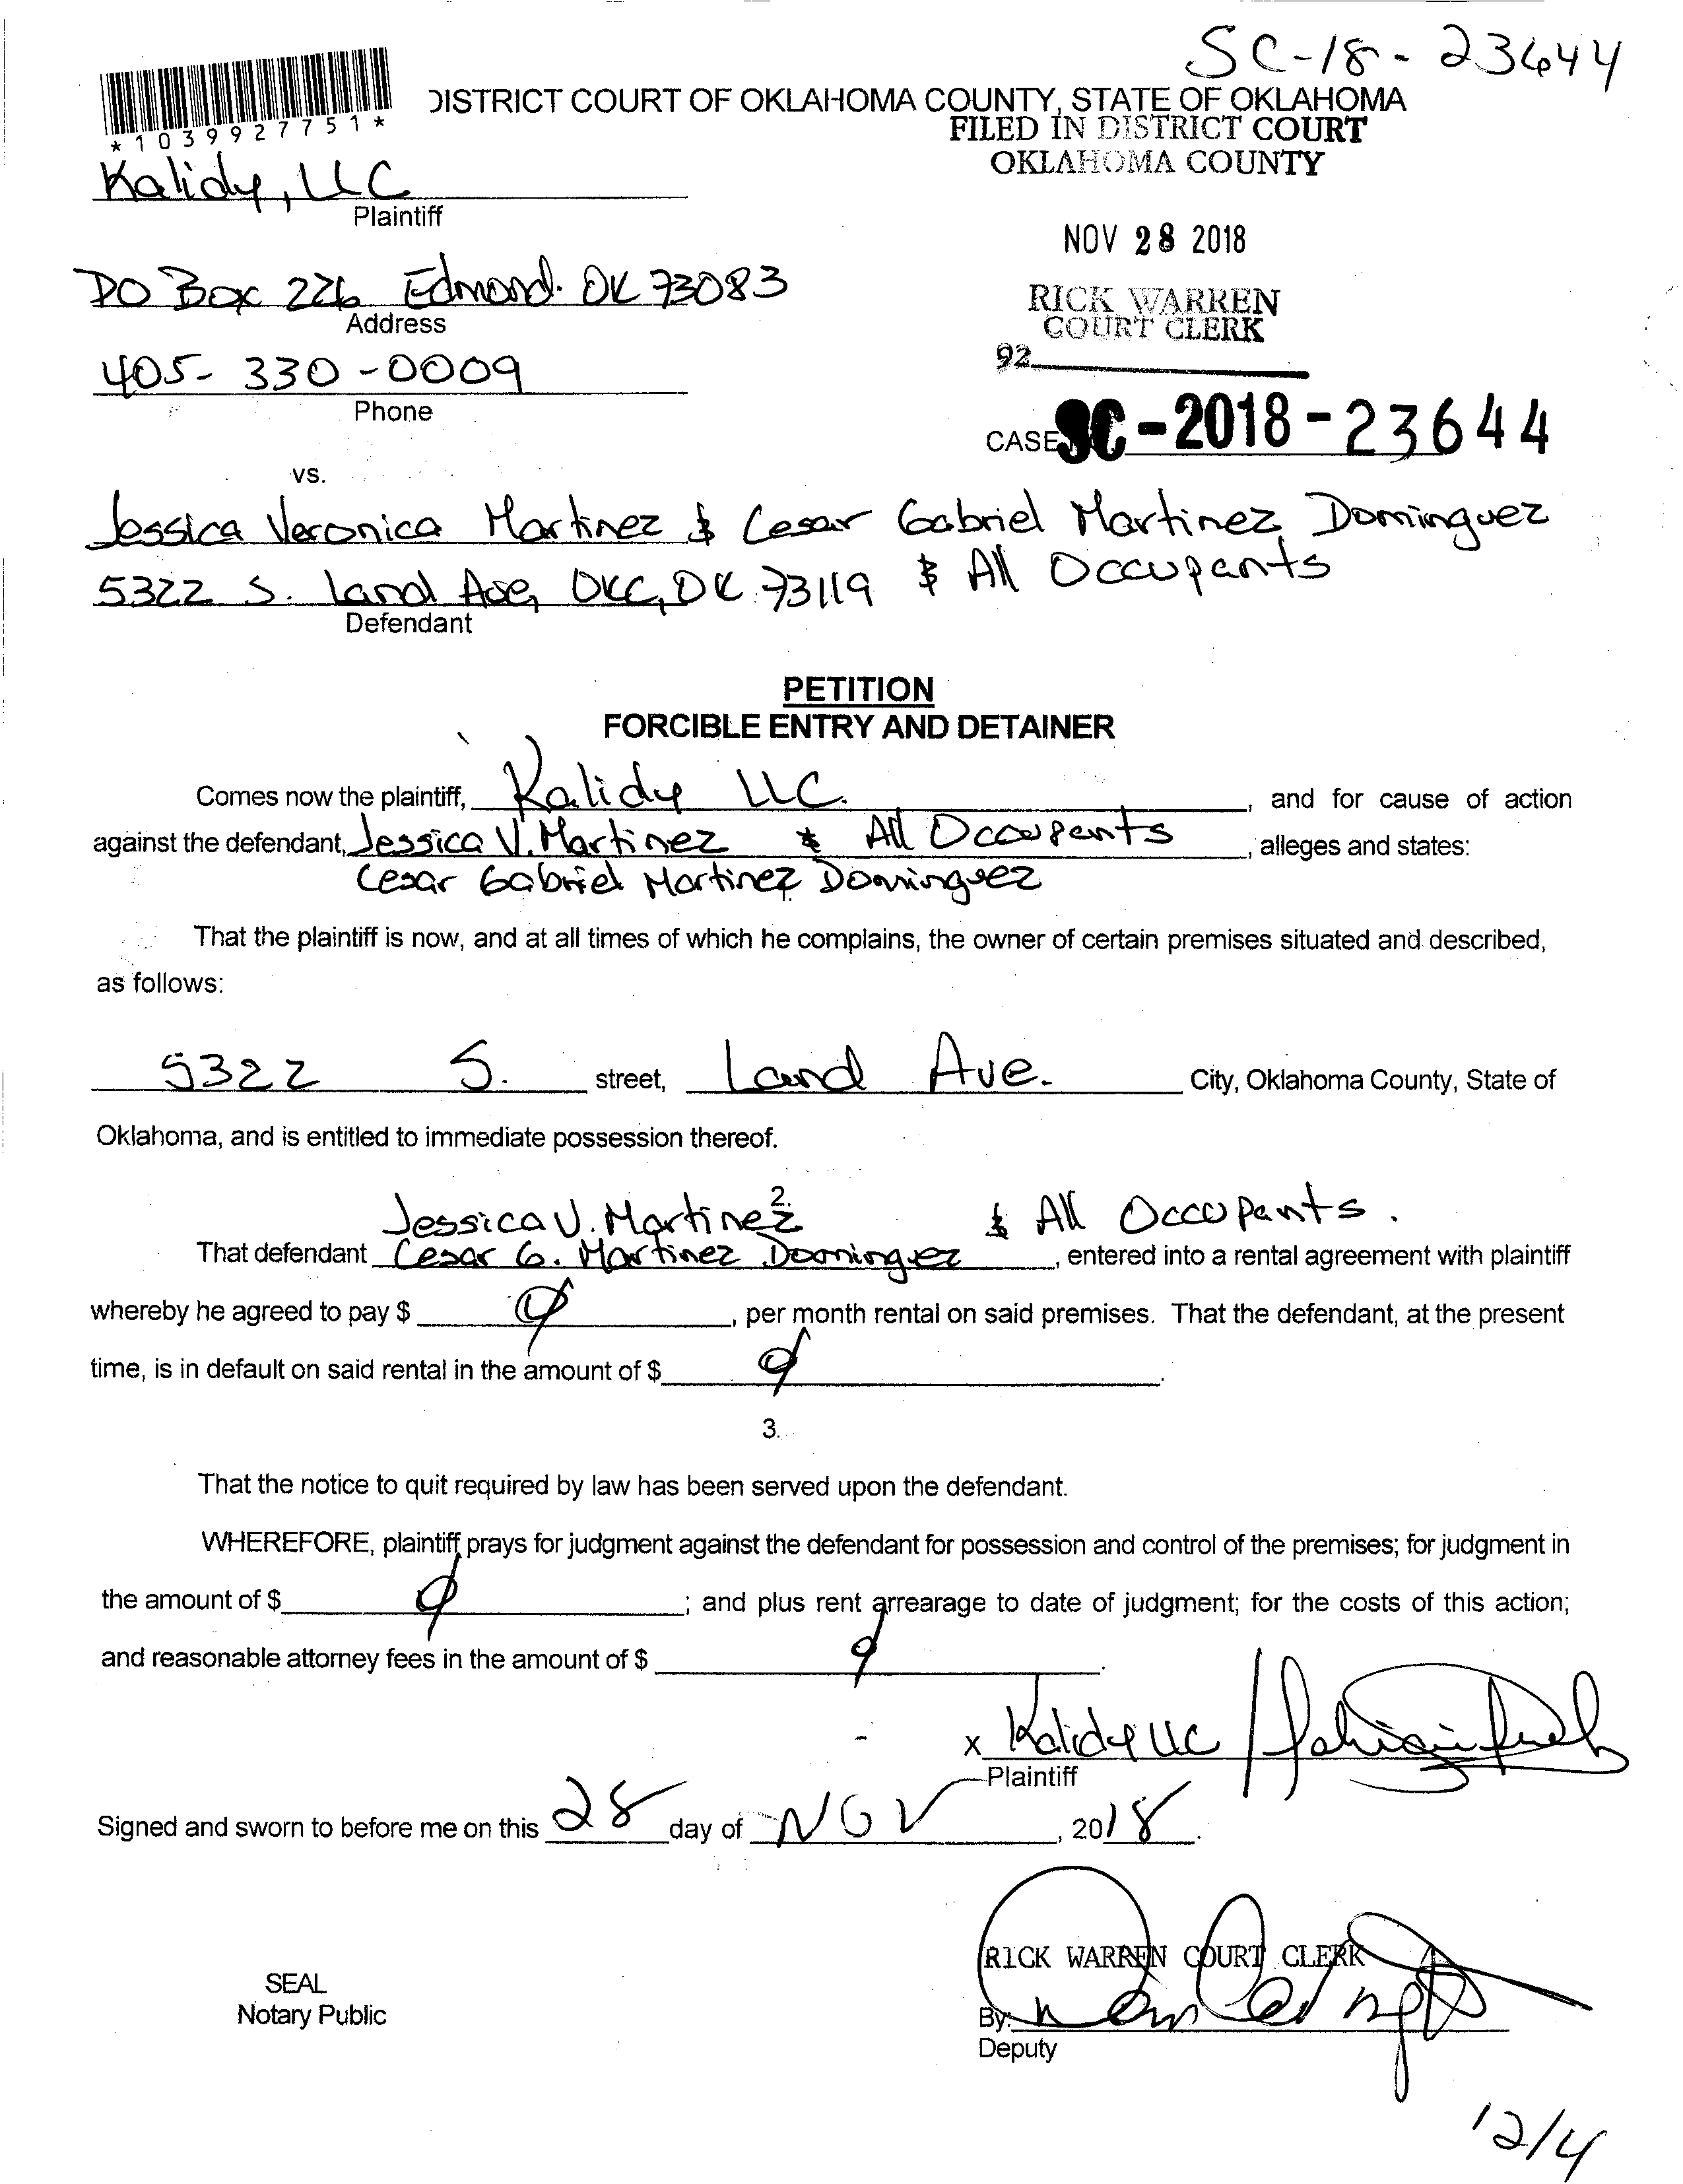 SC-18-23644
*1039927751*
DISTRICT COURT OF OKLAHOMA COUNTY, STATE OF OKLAHOMA
FILED IN DISTRICT COURT
OKLAHOMA COUNTY
Kalidy, LLC
Plaintiff
NOV 28 2018
PO Box 226 Edmond. OK 73083
Address
RICK WARREN
COURT CLERK
92
405-330-0009
Phone
CASE SC-2018-23644
vs.
Jessica Veronica Martinez & Cesar Gabriel Martinez Dominguez
5322 S. Land Ave, OKC, OK 73119 & All Occupants
Defendant
PETITION
FORCIBLE ENTRY AND DETAINER
Comes now the plaintiff, Kalidy LLC. , and for cause of action
against the defendant, Jessica V. Martinez & All Occupants , alleges and states:
Cesar Gabriel Martinez Dominguez
That the plaintiff is now, and at all times of which he complains, the owner of certain premises situated and described,
as follows:
5322 S. street, Land Ave. City, Oklahoma County, State of
Oklahoma, and is entitled to immediate possession thereof.
2.
Jessica V. Martinez & All Occupants.
That defendant Cesar G. Martinez Dominguez , entered into a rental agreement with plaintiff
whereby he agreed to pay $ 0 , per month rental on said premises. That the defendant, at the present
time, is in default on said rental in the amount of $ 0 .
3.
That the notice to quit required by law has been served upon the defendant.
WHEREFORE, plaintiff prays for judgment against the defendant for possession and control of the premises; for judgment in
the amount of $ 0 ; and plus rent arrearage to date of judgment; for the costs of this action;
and reasonable attorney fees in the amount of $ 0 .
x Kalidy LLC /
Plaintiff
Signed and sworn to before me on this 28 day of NOV , 2018 .
RICK WARREN COURT CLERK
SEAL
Notary Public
By:
Deputy
12/4